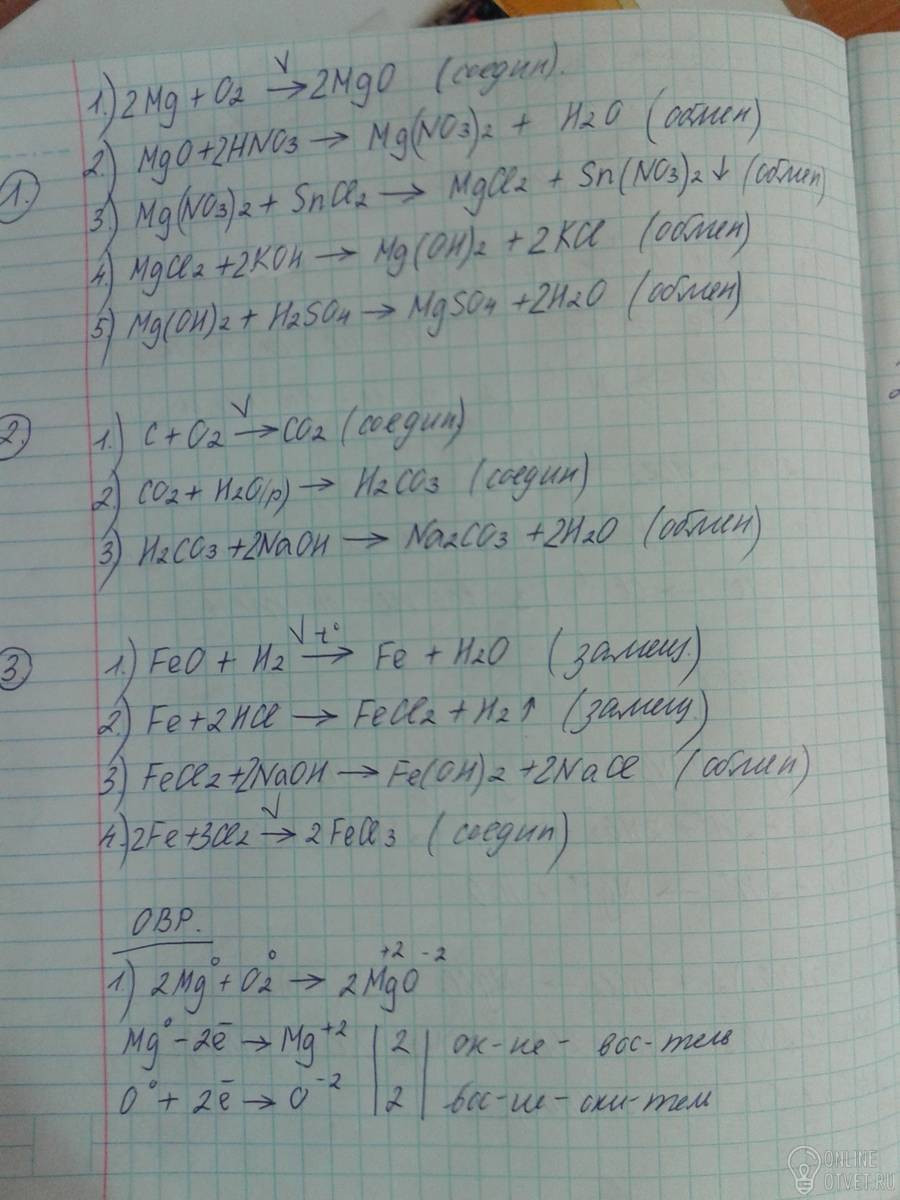 1.
1.) 2Mg + O2 → 2MgO (соедин).
2.) MgO + 2HNO3 → Mg(NO3)2 + H2O (обмен)
3.) Mg(NO3)2 + SnCl2 → MgCl2 + Sn(NO3)2↓ (обмен)
4.) MgCl2 + 2KOH → Mg(OH)2 + 2KCl (обмен)
5) Mg(OH)2 + H2SO4 → MgSO4 + 2H2O (обмен)
2.
1.) C + O2 → CO2 (соедин)
2) CO2 + H2O(р) → H2CO3 (соедин)
3) H2CO3 + 2NaOH → Na2CO3 + 2H2O (обмен)
3.
1.) FeO + H2 t° → Fe + H2O (замещ.)
2.) Fe + 2HCl → FeCl2 + H2↑ (замещ.)
3) FeCl2 + 2NaOH → Fe(OH)2 + 2NaCl (обмен)
4.) 2Fe + 3Cl2 → 2FeCl3 (соедин)
ОВР.
1.) 2Mg° + O2° → 2Mg+2O-2
Mg° - 2e̅ → Mg+2 | 2 | ок-ие - вос-тель
O° + 2e̅ → O-2 | 2 | вос-ие - оки-тел
ONLINE
OTVET.RU